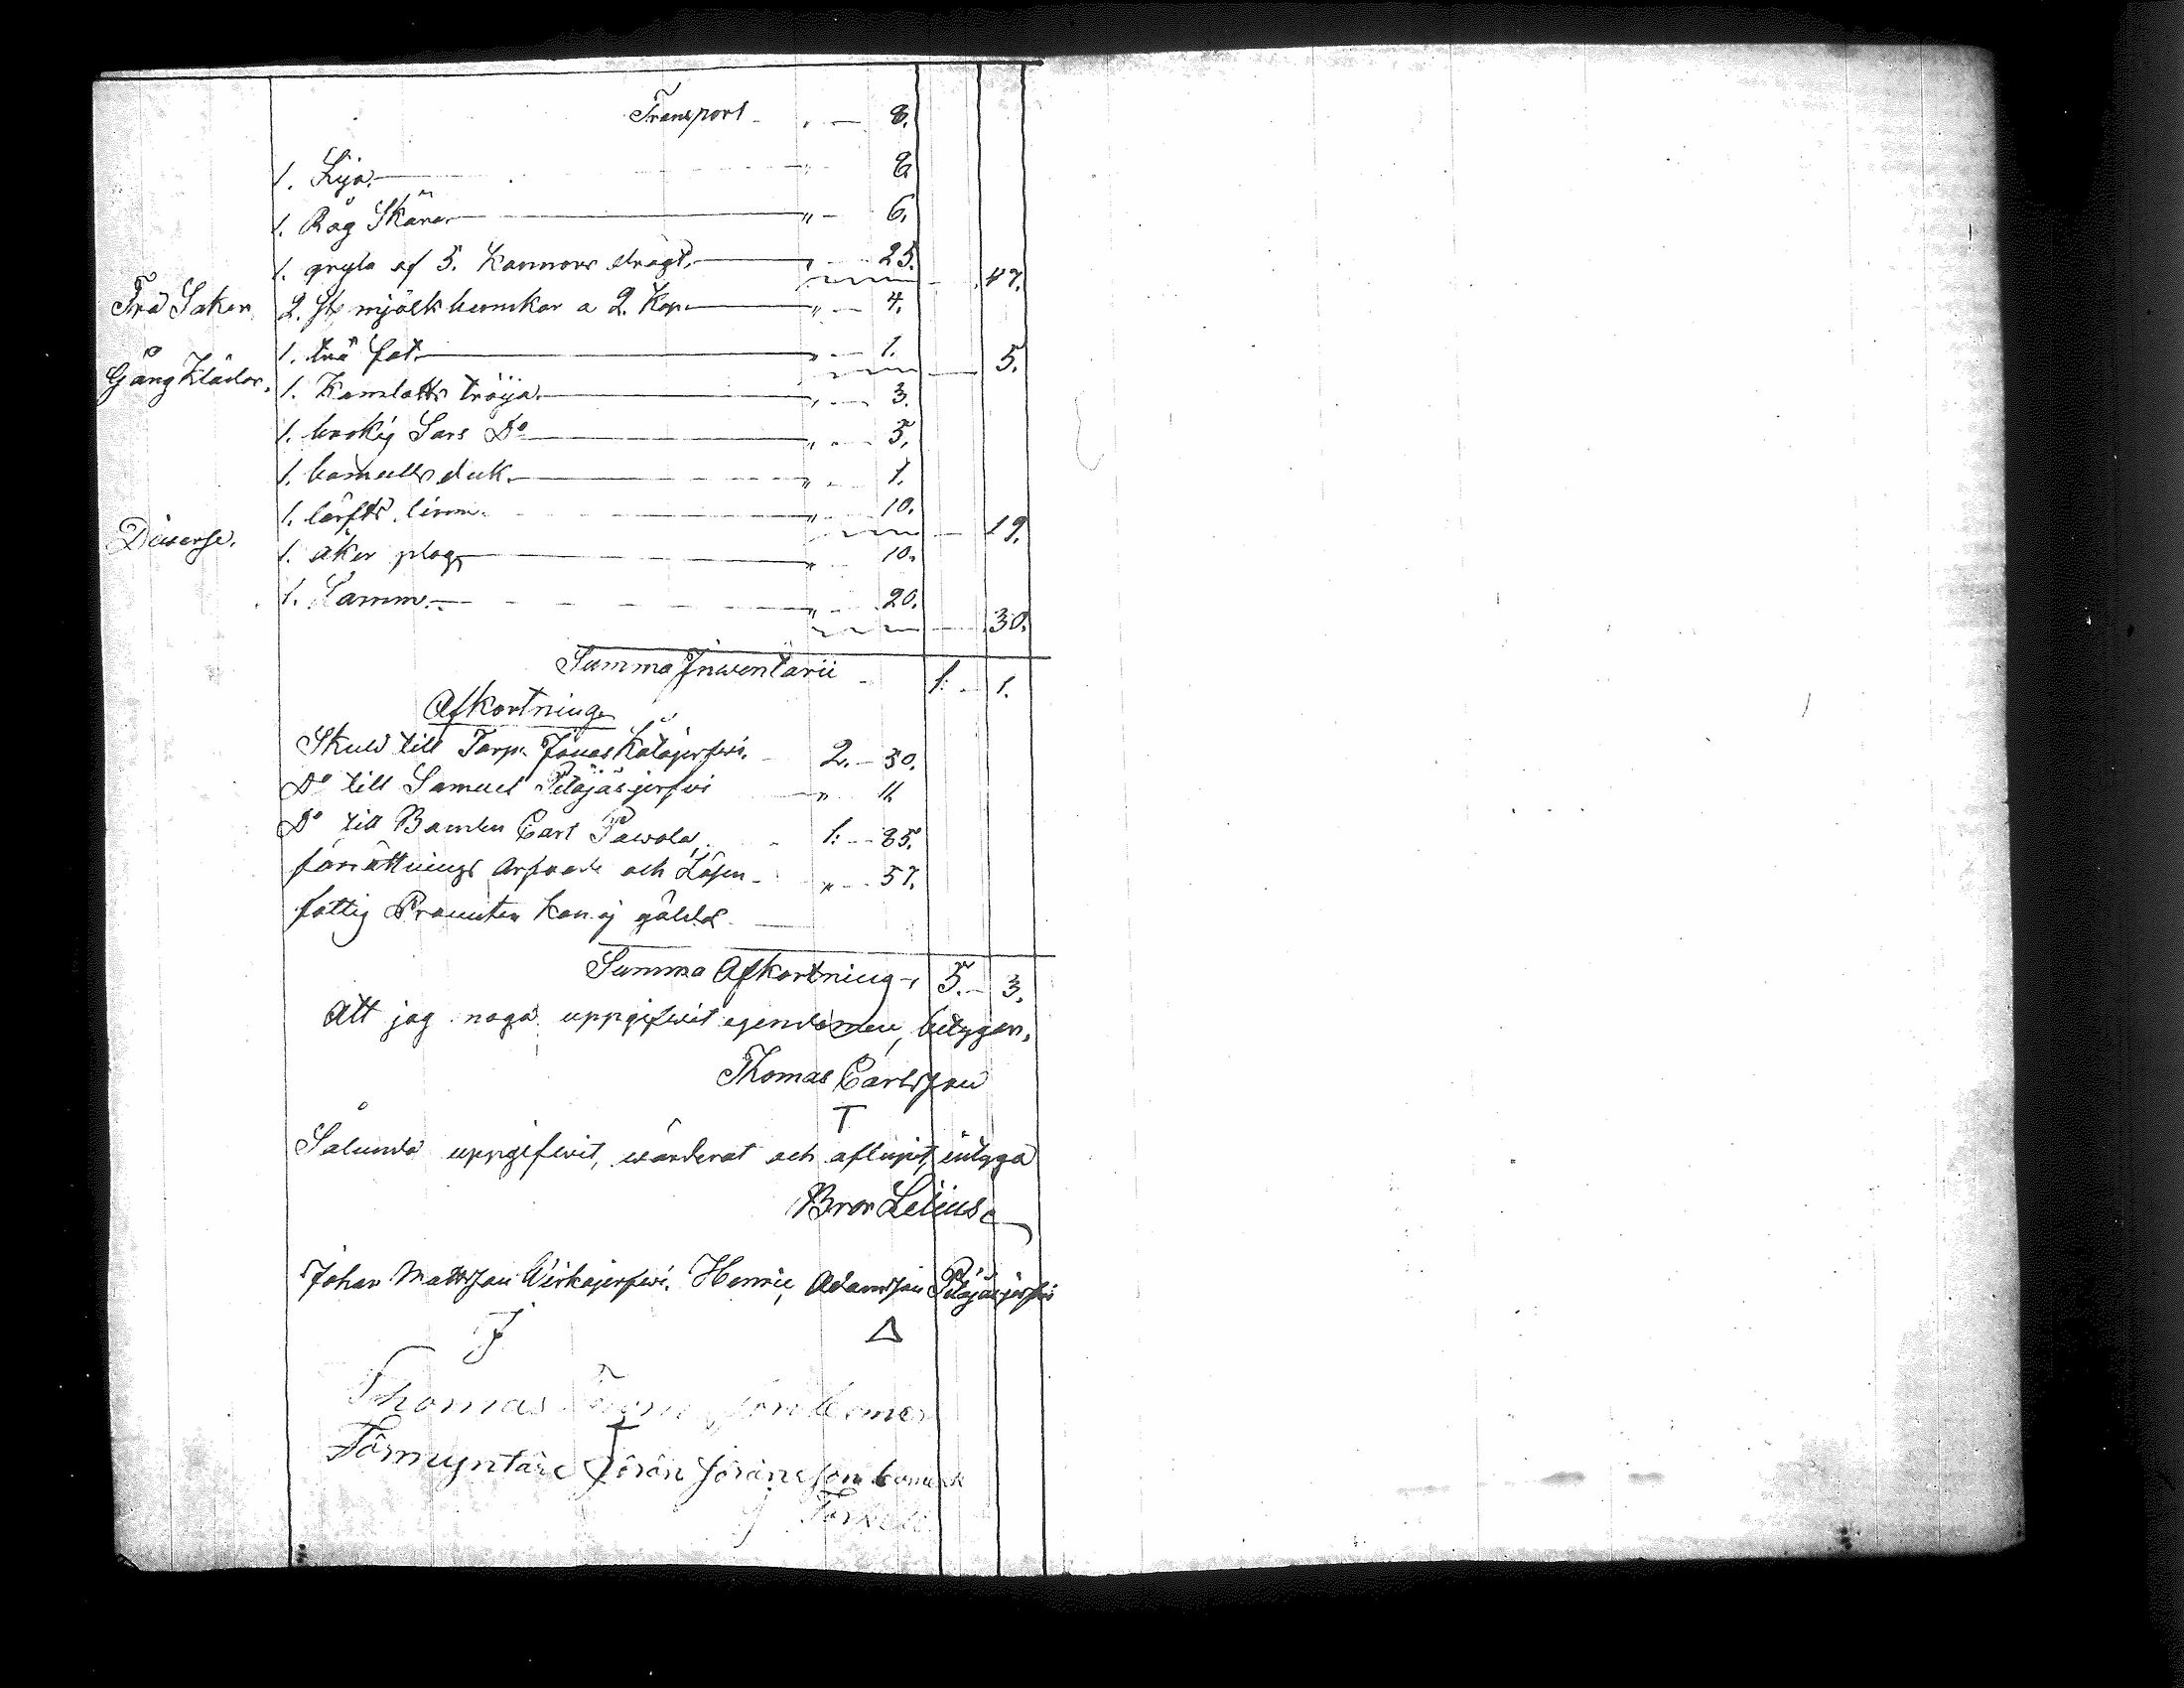 Transport „ — 8.
1. Lija. „ 8
1. Råg Skära „ — 6.
1. gryta af 5. Kannors drägt. „ 25. 47.
Trä Saker 2. st mjölk bunckar a 2. Kop. „ — 4.
1. trä fat „ — 1. 5.
Gång Kläder. 1. Kamlotts tröija. „ — 3.
1. brokig Sars D:o „ — 5.
1. bomulls duk. „ — 1.
1. lärfts linn. „ — 10. 19.
Diverse. 1. åker plog „ 10.
1. Lamm. „ — 20. 30.
Summa Inventarii 1: 1.
Afkortning
Skuld till Torp. Jonas Kätäjerfwi. 2. — 30.
D:o till Samuel Petäjäsjerfwi „ 11.
D:o till Bonden Carl Pawola, 1: — 85.
förrättnings Arfvode och Lösen „ — 57.
fattig Procenten kan ej gälda
Summa Afkortning 5. — 3.
Att jag noga uppgifwit egendomen, betygar.
Thomas Carlsson
T
Sålunda uppgifwit, wärderat och aflupit, intyga
Bror Lilius
Johan Mattsson Wirkajerfwi. Henric Adamsson Petäjäsjerfwi
J Δ
Thomas
Förmyntäre Jörän Jöransson